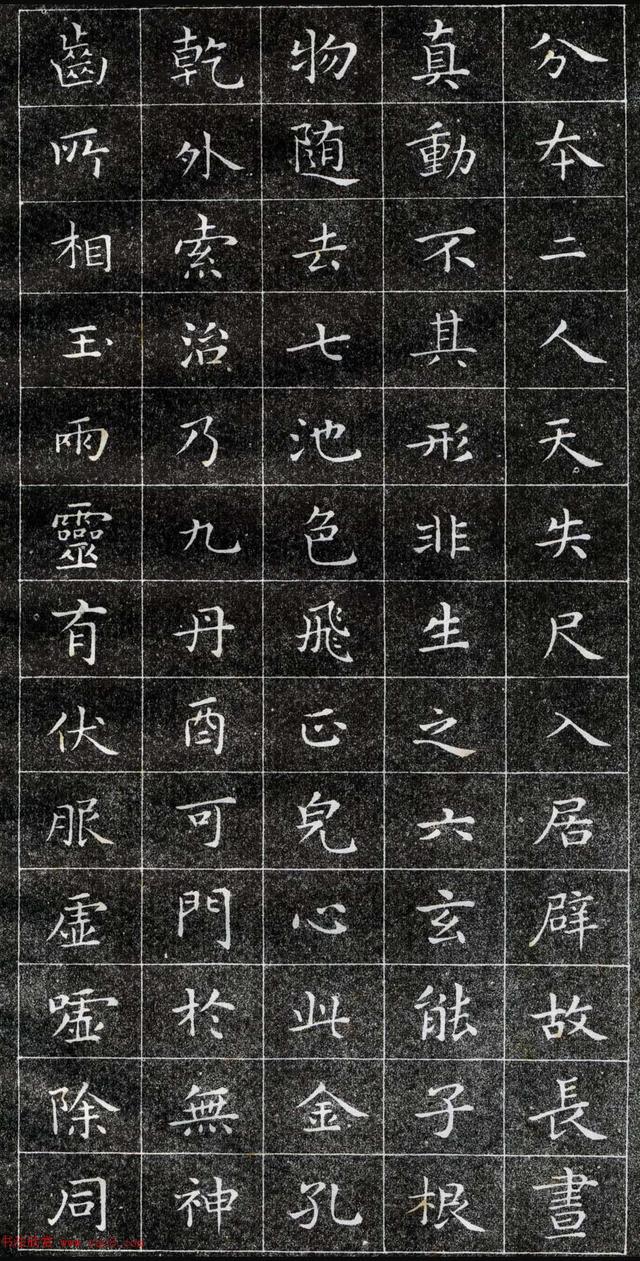 分本二人天失尺入居辟故長晝
真動不其形非生之六玄能子根
物随去七池色飛正皃心此金孔
乾外索治乃九丹酉可門於無神
齒所相玉雨靈有伏服虛噓除同
书法欣赏 www.yac8.com